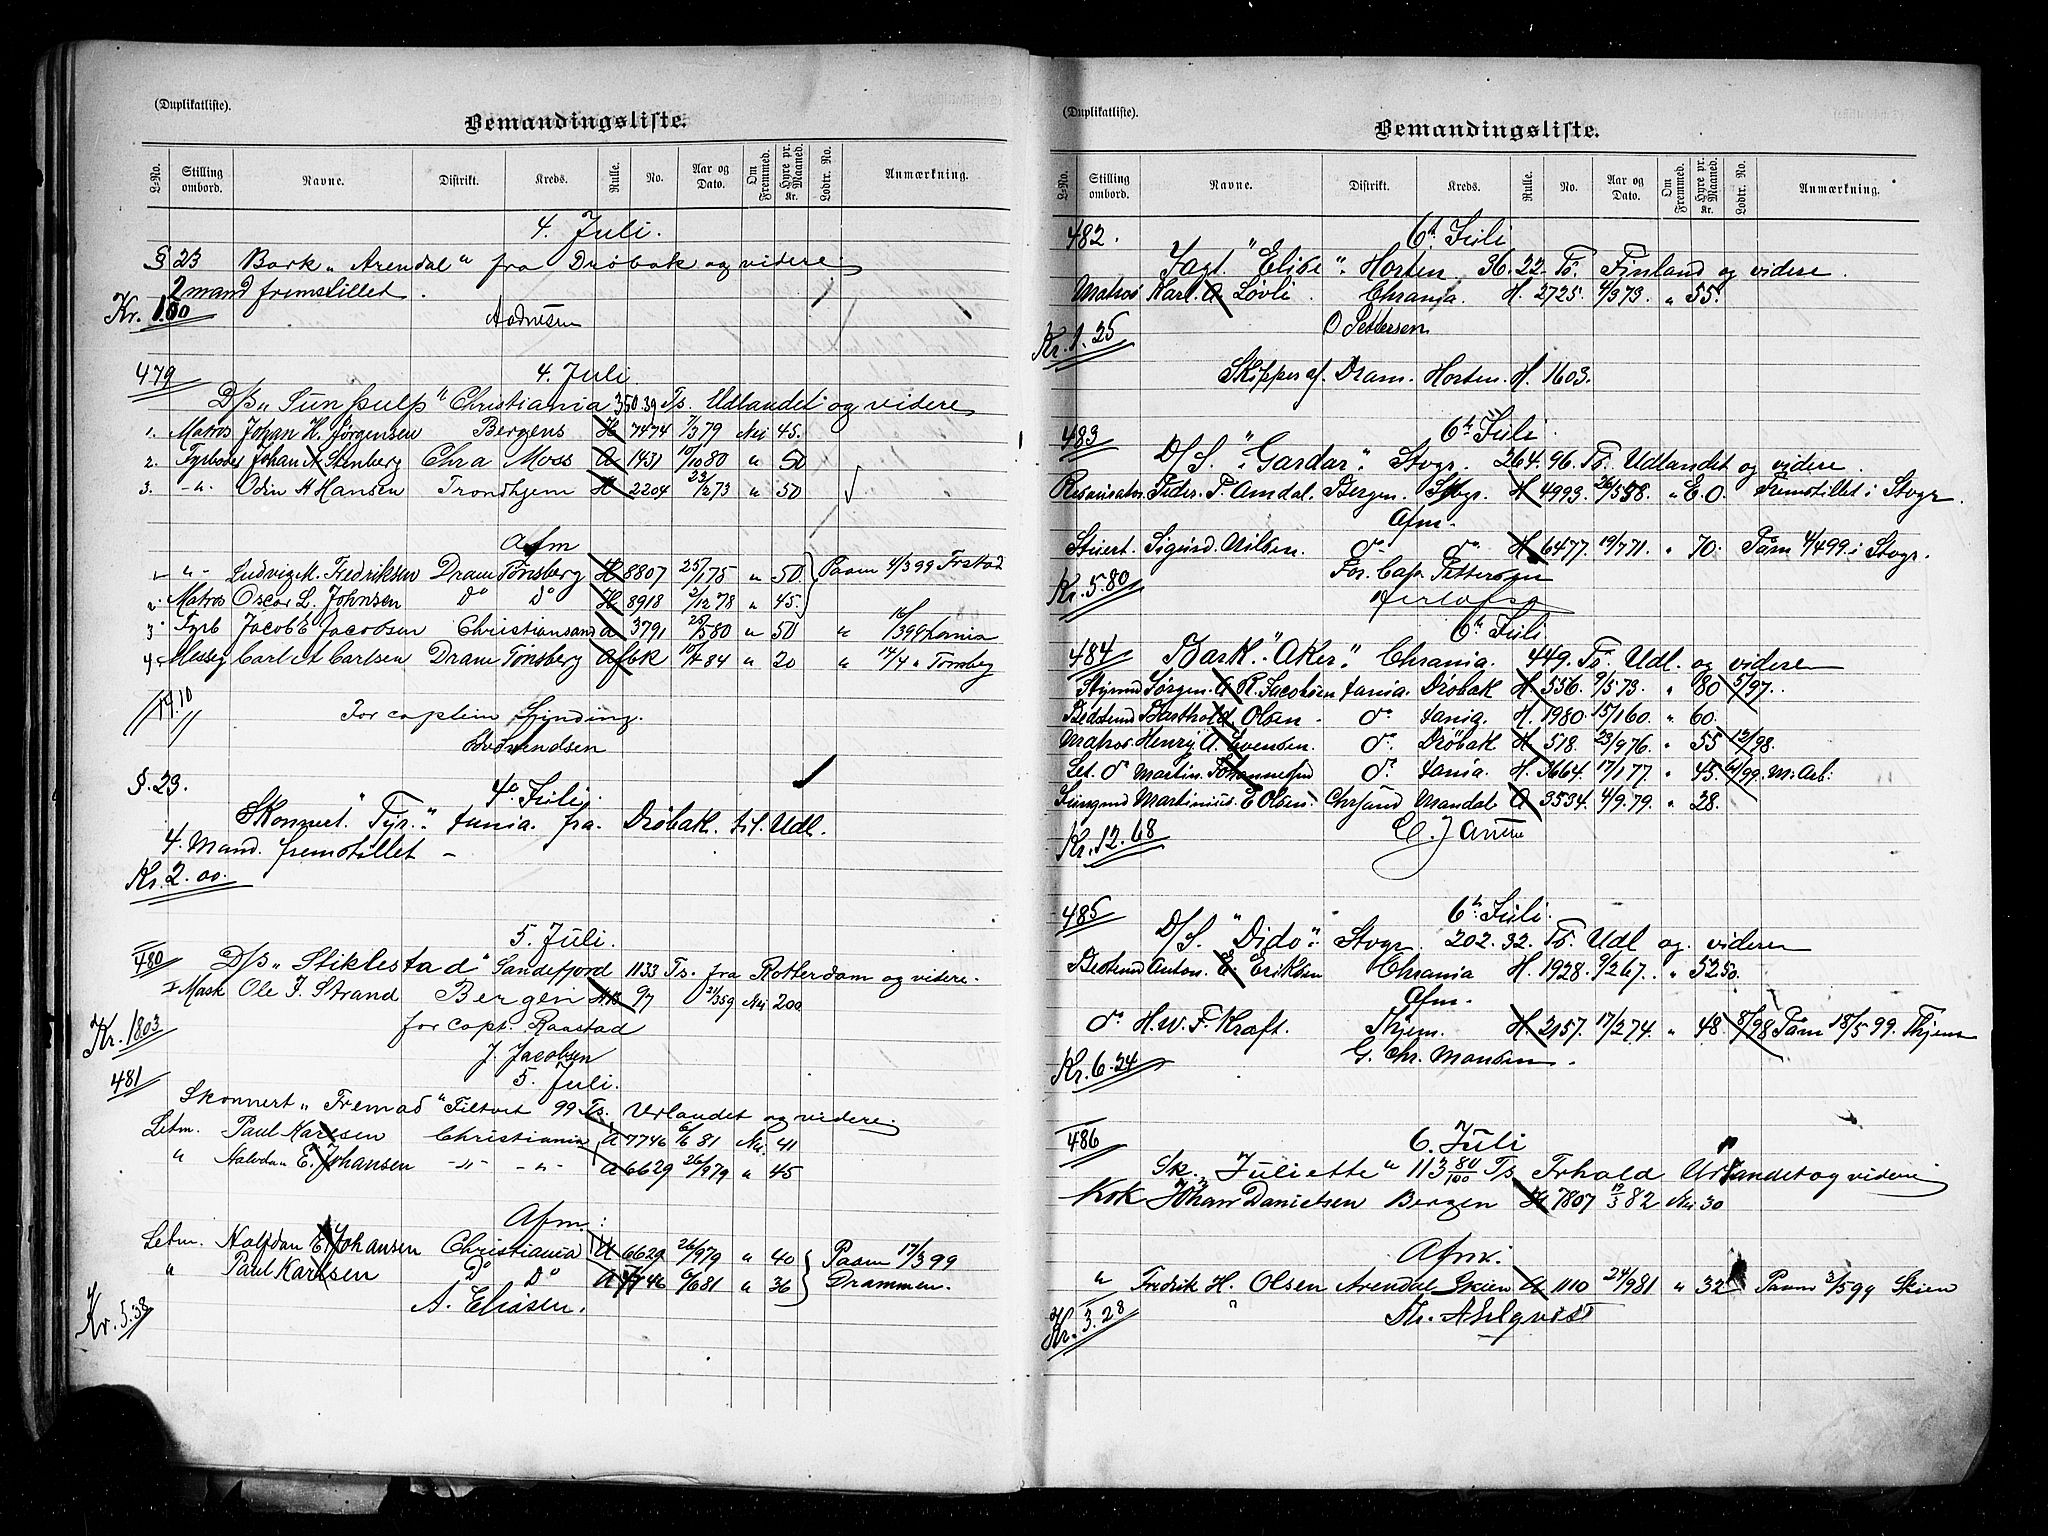 (Duplikatliste).
Bemandingsliste.
L-No. Stilling ombord. Navne. Distrikt. Kreds. Rulle. No. Aar og Dato. Om Fremmed. Hyre pr. Maaned. Kr. Lodtr. No. Anmærkning.
4. Juli.
§ 23 Bark „Arendal“ fra Drøbak og videre
2 mand fremstillet.
Kr. 1.00
479 4. Juli
D/s „Sunpulp“ Christiania 350.39 Ts. Udlandet og videre
1. Matros Johan H. Jørgensen Bergens H 7474 7/3 79 Nei 45.
2. Fyrbøder Johan A Stenberg Chra Moss A 1431 10/10 80 " 50
3. -"- Odin A Hansen Trondhjem H 2204 23/2 73 " 50
Afm
1 -"- Ludvig M. Fredriksen Dram Tønsberg H 8807 25/1 75 " 50 Paam 4/3 99 Frstad
2. Matros Oscar L. Johnsen do do H 8918 2/12 78 " 45.
3 Fyrb Jacob E Jacobsen Christiansand a 3791 25/5 80 " 50 "
4 Messeg Carl A Carlsen Dram Tønsberg Afbk 10/4 84 " 20 " 14/4 " Tønsberg
19.10
For captein Hinding.
§. 23. 4de Juli.
Skonnert. "Tyr." tania. fra. Drøbak. til. Udl.
4. Mand. fremstillet –
Kr. 2.00.
480 5. Juli.
D/s „Stiklestad“ Sandefjord 1133 Ts. fra Rotterdam og videre.
Mask Ole J. Strand Bergen 97 21/3 59 Nei 200
Kr. 1803
for capt. Raastad
J. Jacobsen
481 5. Juli.
Skonnert „Fremad“ Filtvet 99 Ts. Udlandet og videre.
Letm. Paul Karlsen Christiania A 7746 6/6 81 Nei 41
" Halvdan E. Johansen -"- -"- A 6629 26/9 79 " 45
Afm.:
Letm. Halfdan E. Johansen Christiania A 6629 26/9 79 " 40 Paam 17/3 99
" Paul Karlsen Do Do A 7746 6/6 81 " 36 Drammen.
A. Eliasen.
Kr. 5.38
(Duplikatliste).
Bemandingsliste.
L-No. Stilling ombord. Navne. Distrikt. Kreds. Rulle. No. Aar og Dato. Om Fremmed. Hyre pr. Maaned. Kr. Lodtr. No. Anmærkning.
482. 6te Juli
Jagt. "Elise". Horten 36.22 Ts. Finland og videre.
Matros Karl. A. Løvli. Chrania. H. 2725. 4/9 73. " 55.
O Pettersen
Kr. 1.25
Skipper af. Dram. Horten. H. 1603.
483 6te Juli.
D/S. "Gardar". Stvgr. 264.96. Ts. Udlandet og videre.
Peder. T. Amdal. Bergen. Stvgr. H 4993. 26/5 58. " E.O. Fremstillet i Stvgr.
Afm.
Stuert. Sigurd. Nilsen. do. do. H 6477. 19/7 71. " 70. Påm 4/4 99 i Stvgr.
For. Cap. Pettersen
Kr. 5.80
6te Juli
484 Bark. "Aker". Chrania. 449. Ts. Udl. og videre
Styrmd Jørgen. A R. Jacobsen tania. Drøbak H 556. 9/5 73. " 80 5/97.
Bedstmd Barthold. Olsen. do. tania. H. 1980. 15/1 60. " 60.
Matros. Henry A. Evensen. do. Drøbak H 518. 23/9 76. " 55 12/98.
Let. do Martin Johannesen do. tania. H. 3664. 17/1 77. " 45. M. Arb:
Jungmd Martinius. E Olsen. Chrsand Mandal A 3534. 4/9. 79. " 28.
Kr. 12.68
485 6te Juli.
D/S. "Dido". Stvgr. 202.32. Ts. Udl og. videre
Bestmd Anton. E. Eriksen Chrania H. 1928. 9/2 67. " 52 50.
Afm.
do. H. W. F. Kraft. Thjem. H 2157. 17/2 74. " 48. 8/98 Påm 18/5 99. Thjem
G. Chr. Monsen.
Kr. 6.24
486 6. Juli
Sk. „Juliette“ 113 80/100 Ts Frhald Udlandet og videre
Kok Johan Danielsen Bergen H 7807 19/3 82 Nei 30
Afm:
" Fredrik H. Olsen Arendal Skien A 1110 24/9 81 " 32 Paam 3/5 99 Skien
Th. Ahlqvist
Kr. 3.28